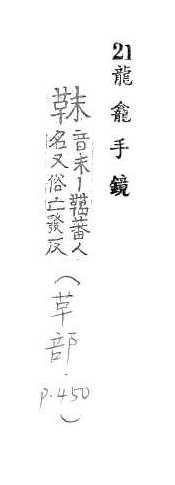 21 龍龕手鏡
靺 音末丨鞨蕃人
名又俗亡發反
(革部.
p.450)